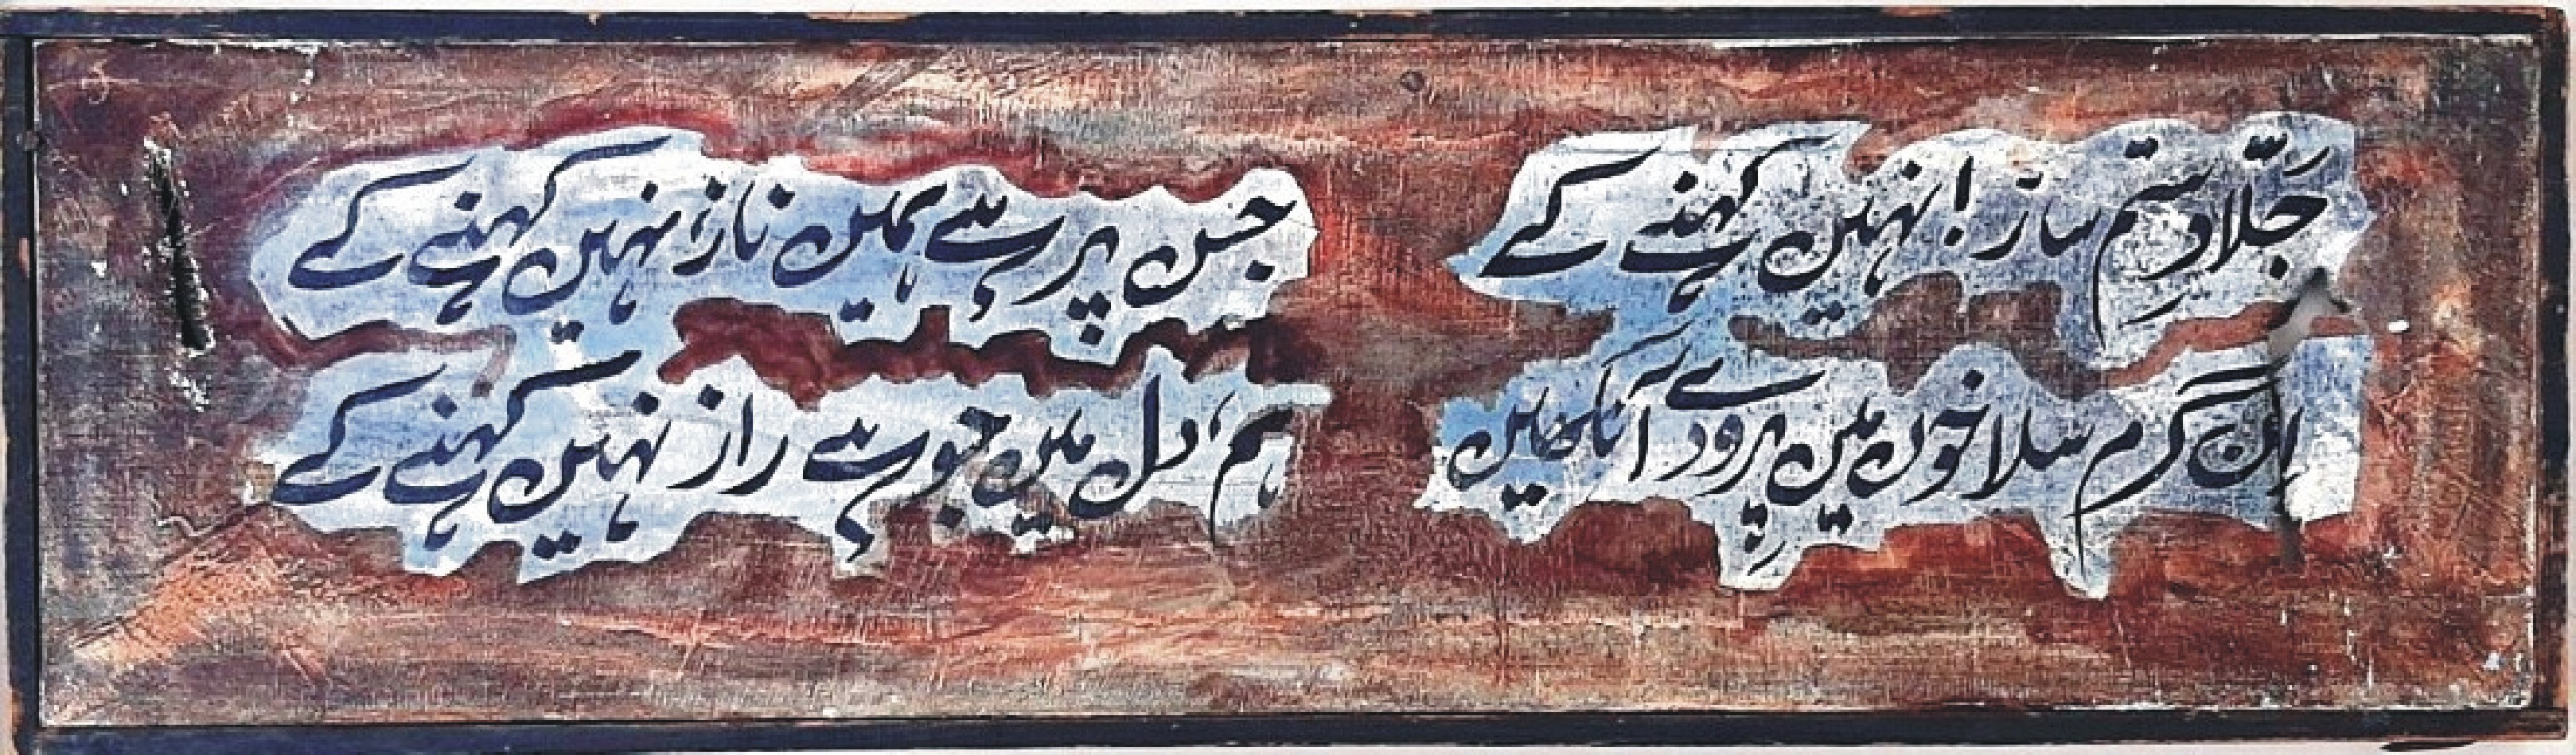 جَلّادِ ستم ساز! نہیں کہنے کے
جس پر ہے ہمیں ناز نہیں کہنے کے
اِن گرم سلاخوں میں پِرو دے آنکھیں
ہم، دل میں جو ہے راز نہیں کہنے کے